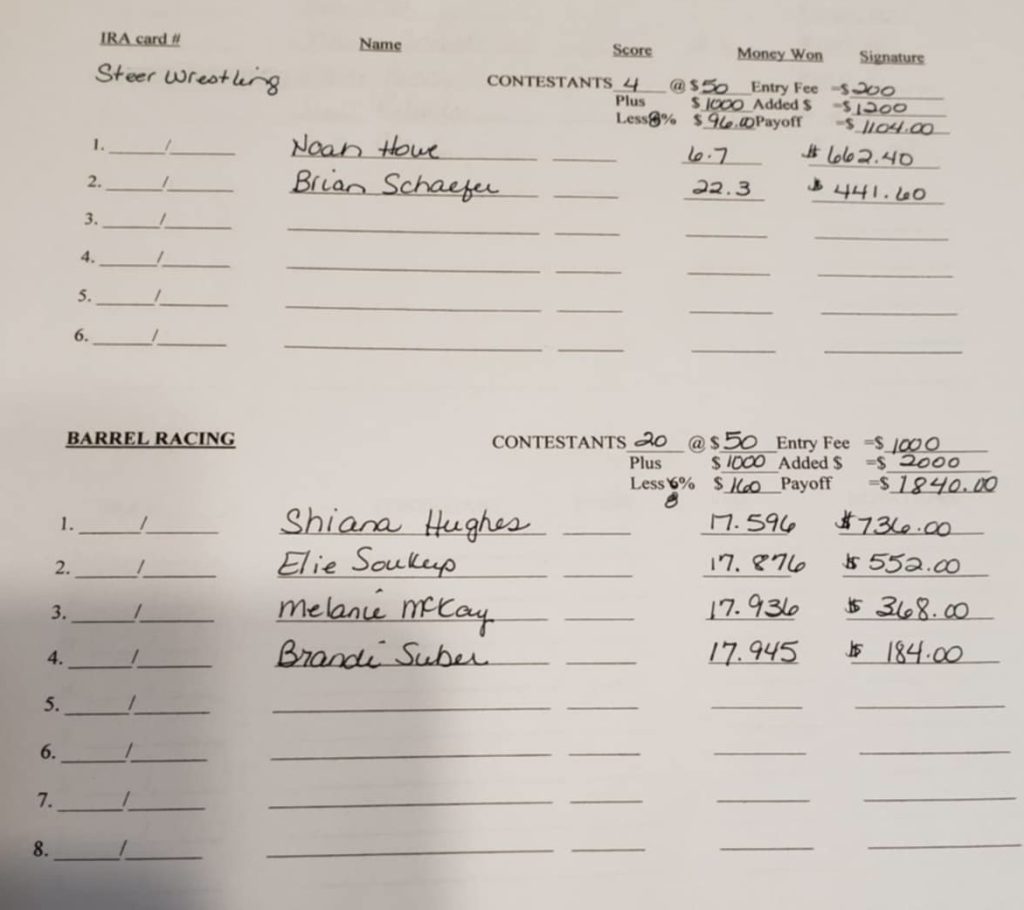 IRA card # Name Score Money Won Signature
Steer Wrestling CONTESTANTS 4 @ $50 Entry Fee =$200
Plus $1000 Added $ =$1200
Less 8% $96.00 Payoff =$1104.00
1. ____/____ Noah Howe 6.7 $662.40
2. ____/____ Brian Schaefer 22.3 $441.60
3. ____/____
4. ____/____
5. ____/____
6. ____/____
BARREL RACING CONTESTANTS 20 @ $50 Entry Fee =$1000
Plus $1000 Added $ =$2000
Less 6% $160 Payoff =$1840.00
8
1. ____/____ Shiana Hughes 17.596 $736.00
2. ____/____ Elie Soukup 17.876 $552.00
3. ____/____ Melanie McKay 17.936 $368.00
4. ____/____ Brandi Suber 17.945 $184.00
5. ____/____
6. ____/____
7. ____/____
8. ____/____